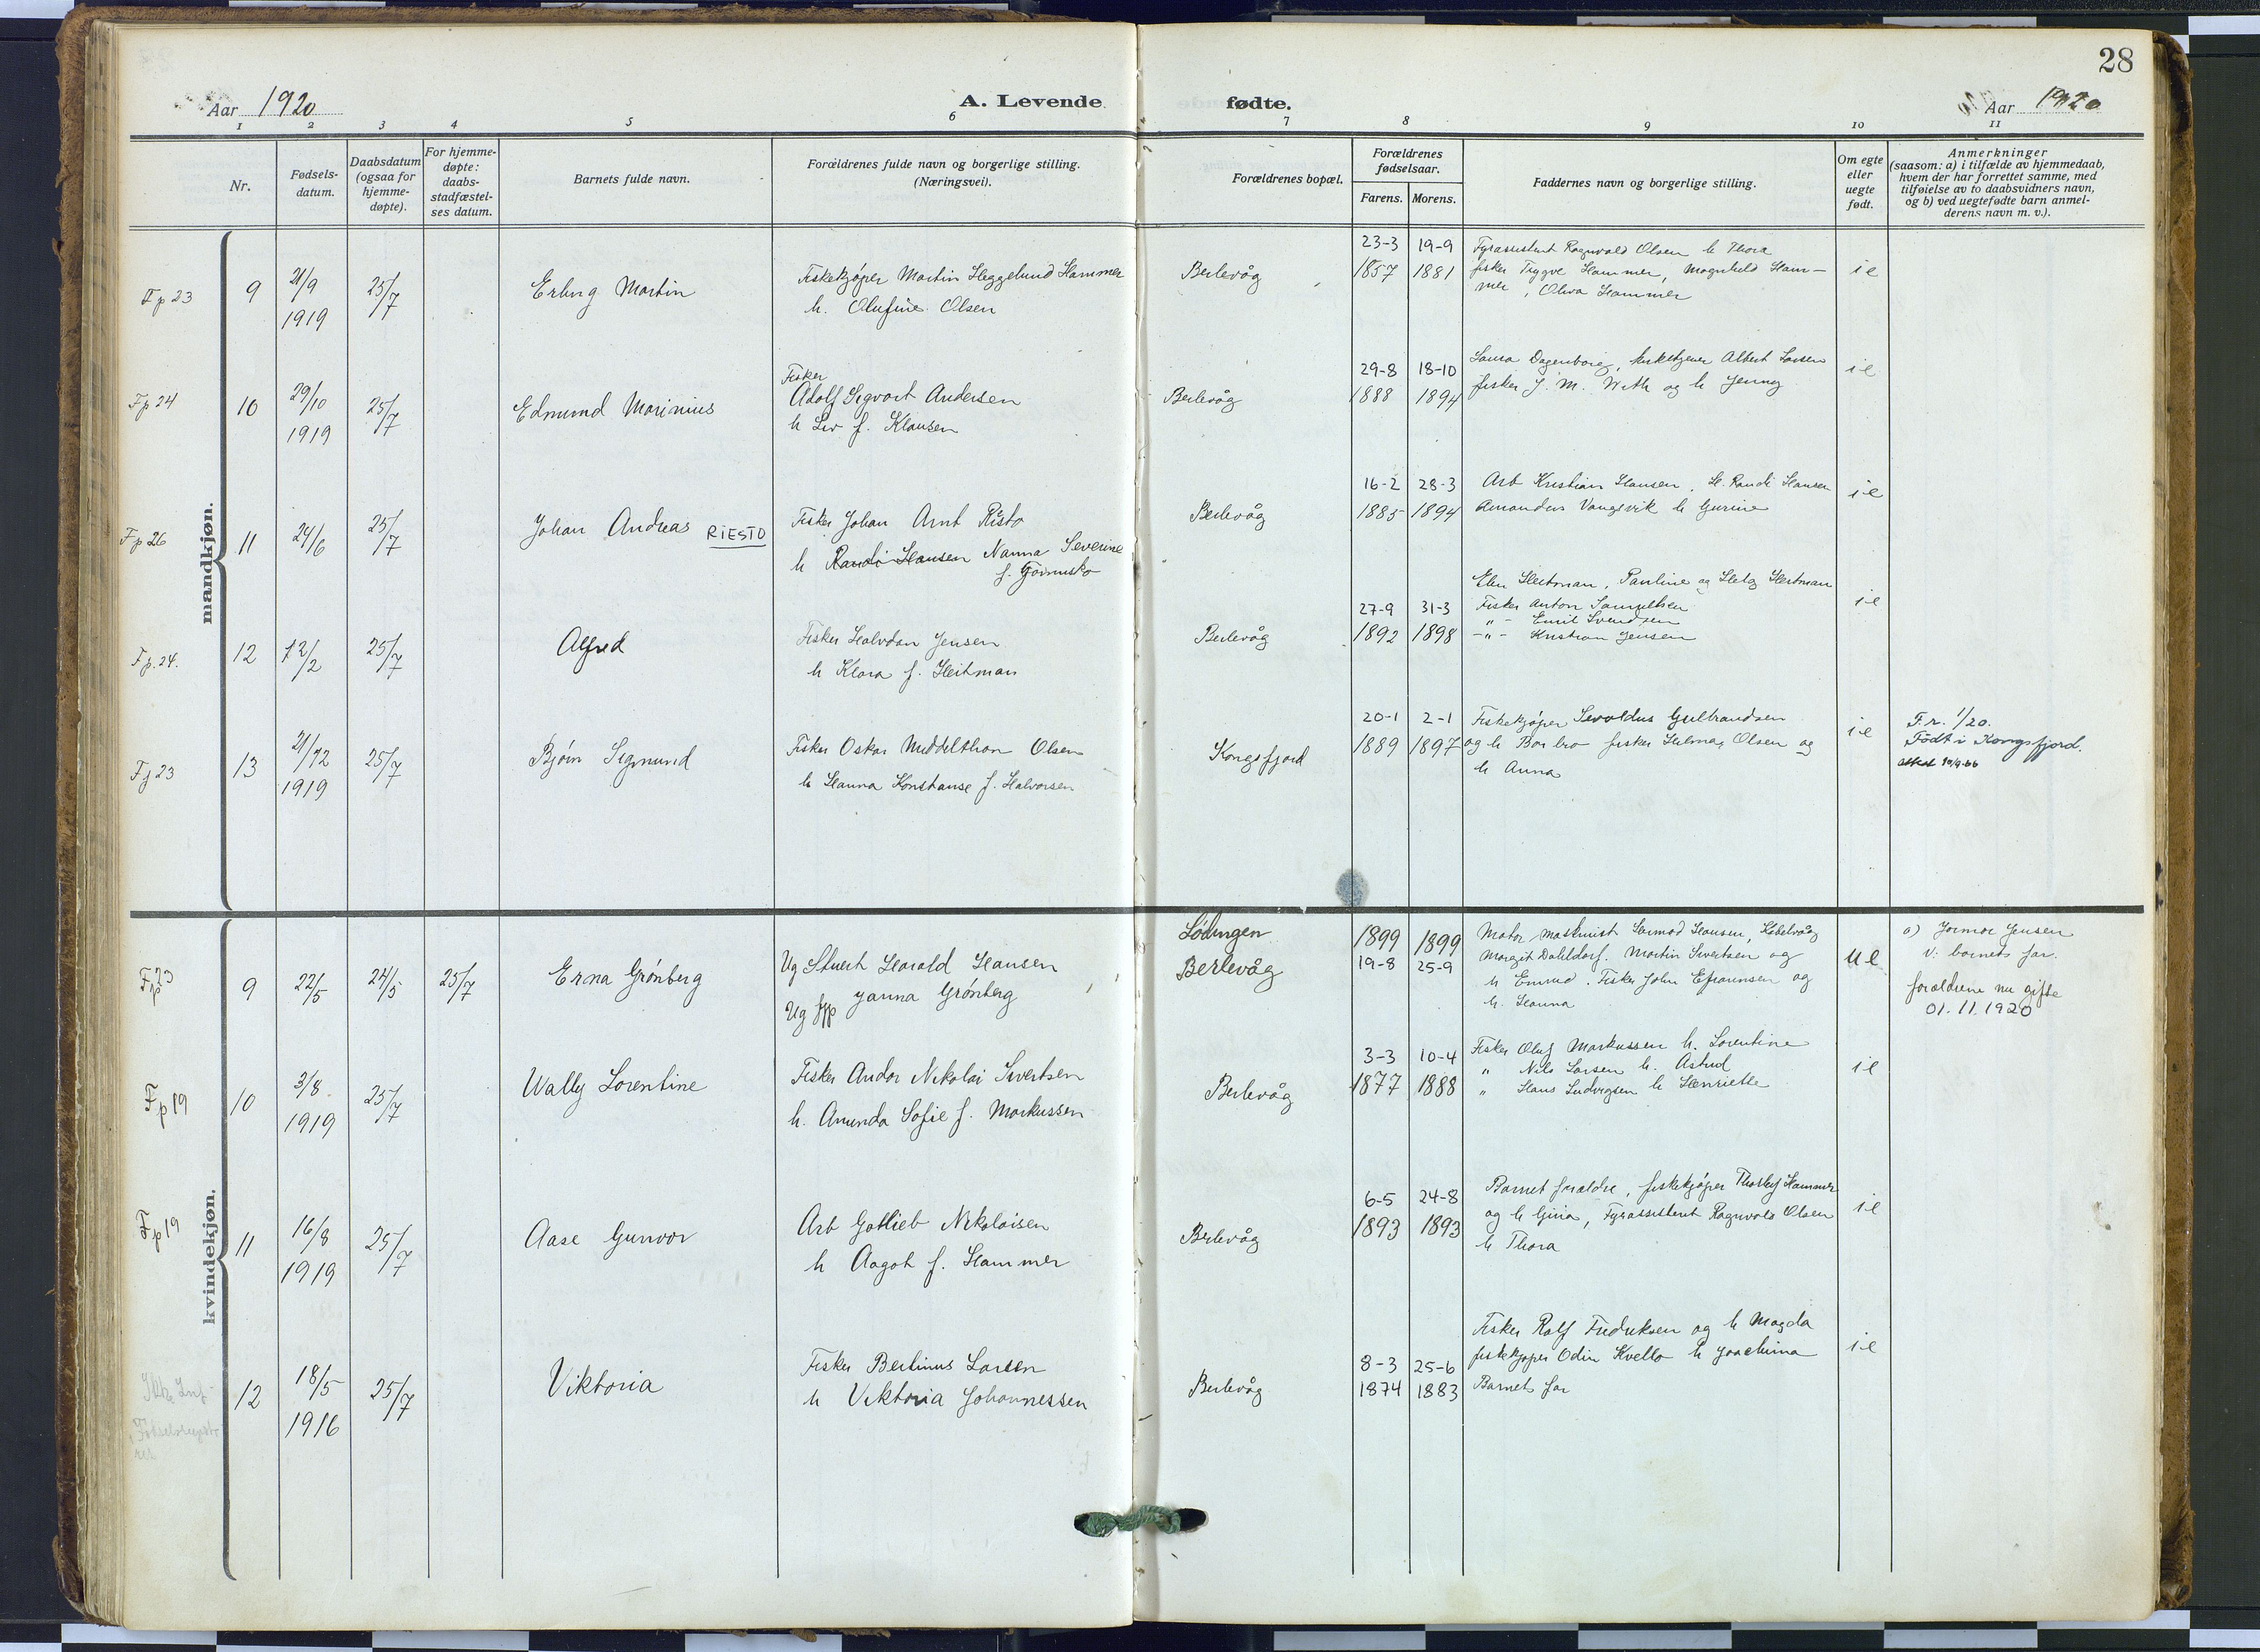 28
Aar 1920
A. Levende fødte.
Aar 1920
1 2 3 4 5 6 7 8 9 10 11
Nr.
Fødsels-
datum.
Daabsdatum
(ogsaa for
hjemme-
døpte).
For hjemme-
døpte:
daabs-
stadfæstel-
ses datum.
Barnets fulde navn.
Forældrenes fulde navn og borgerlige stilling.
(Næringsvei).
Forældrenes bopæl.
Forældrenes
fødselsaar.
Farens. Morens.
Faddernes navn og borgerlige stilling.
Om egte
eller
uegte
født.
Anmerkninger
(saasom: a) i tilfælde av hjemmedaab,
hvem der har forrettet samme, med
tilføielse av to daabsvidners navn,
og b) ved uegtefødte barn anmel-
derens navn m. v.).
mandkjøn.
Fp 23
9
21/9
1919
25/7
Erling Martin
Fiskekjøper Martin Heggelund Hammer
h. Olufine Olsen
Berlevåg
23-3 19-9
1857 1881
Fyrassistent Ragnvald Olsen h Thora
fisker Trygve Hammer, Magnhild Ham-
mer, Oliva Hammer
ie
Fp 24
10
29/10
1919
25/7
Edmund Marinius
Fisker
Adolf Sigvart Andersen
h Liv f. Klausen
Berlevåg
29-8 18-10
1888 1894
Laura Dagenborg, Albert Larsen
fisker J. M. With og h Jenny
ie
Fp 26
11
24/6
25/7
Johan Andreas RIESTO
Fisker Johan Arnt Risto
h Randi Hansen Nanna Severine
f.
Berlevåg
16-2 28-3
1885 1894
Arb Kristian Hansen, H. Randi Hansen
Amandus Vangsvik h Gurine
ie
Fp. 24.
12
12/2
25/7
Alfred
Fisker Halvdan Jensen
h Klara f. Heitman
Berlevåg
27-9 31-3
1892 1898
Elen Heitman, Pauline og Helg Heitman
Fisker Anton Samuelsen
" - Emil Svendsen
-"- Kristian Jensen
ie
Fj 23
13
21/12
1919
25/7
Bjørn Sigmund
Fisker Oskar Middelthon Olsen
h Hanna Konstanse f. Halvorsen
Kongsfjord
20-1 2-1
1889 1897
Fiskekjøper Sevaldus Gulbrandsen
og h Barbro fisker Hilmar Olsen og
h Anna
ie
F.r. 1/20.
Født i Kongsfjord.
Attest 19/9-66
kvindekjøn.
Fp 23
9
22/5
24/5
25/7
Erna Grønberg
Ug Stuert Harald Hansen
Ug fyp Janna Grønberg
Lødingen
Berlevåg
1899 1899
19-8 25-9
Motor maskinist Hermod Hansen, Kabelvåg
Margit Dahldorf. Martin Sivertsen og
h Emma. Fisker John Efraimsen og
h. Hanna
ue
a) Jermoe Jensen
v: barnets far.
forældrene nu gifte
01.11.1920
Fp 19
10
3/8
1919
25/7
Wally Lorentine
Fisker Andor Nikolai Sivertsen
h. Amanda Sofie f. Markussen
Berlevåg
3-3 10-4
1877 1888
Fisker Oluf Markussen h. Lorentine
" Nils Larsen h. Astrid
" Hans Ludvigsen h Henriette
ie
Fp 19
11
16/8
1919
25/7
Aase Gunvor
Arb Gottlieb Nikolaisen
h Aagot f. Hammer
Berlevåg
6-5 24-8
1893 1893
Barnet forældre, fiskekjøper Thorleif Hammer
og h Gina, Fyrassistent Ragnvald Olsen
h Thora
ie
12
18/5
1916
25/7
Viktoria
Fisker Bertinus Larsen
h Viktoria Johannessen
Berlevåg
8-3 25-6
1874 1883
Fisker Rolf Fredriksen og h Magda
fiskekjøper Odin Kvello h Joachima
Barnets far
ie